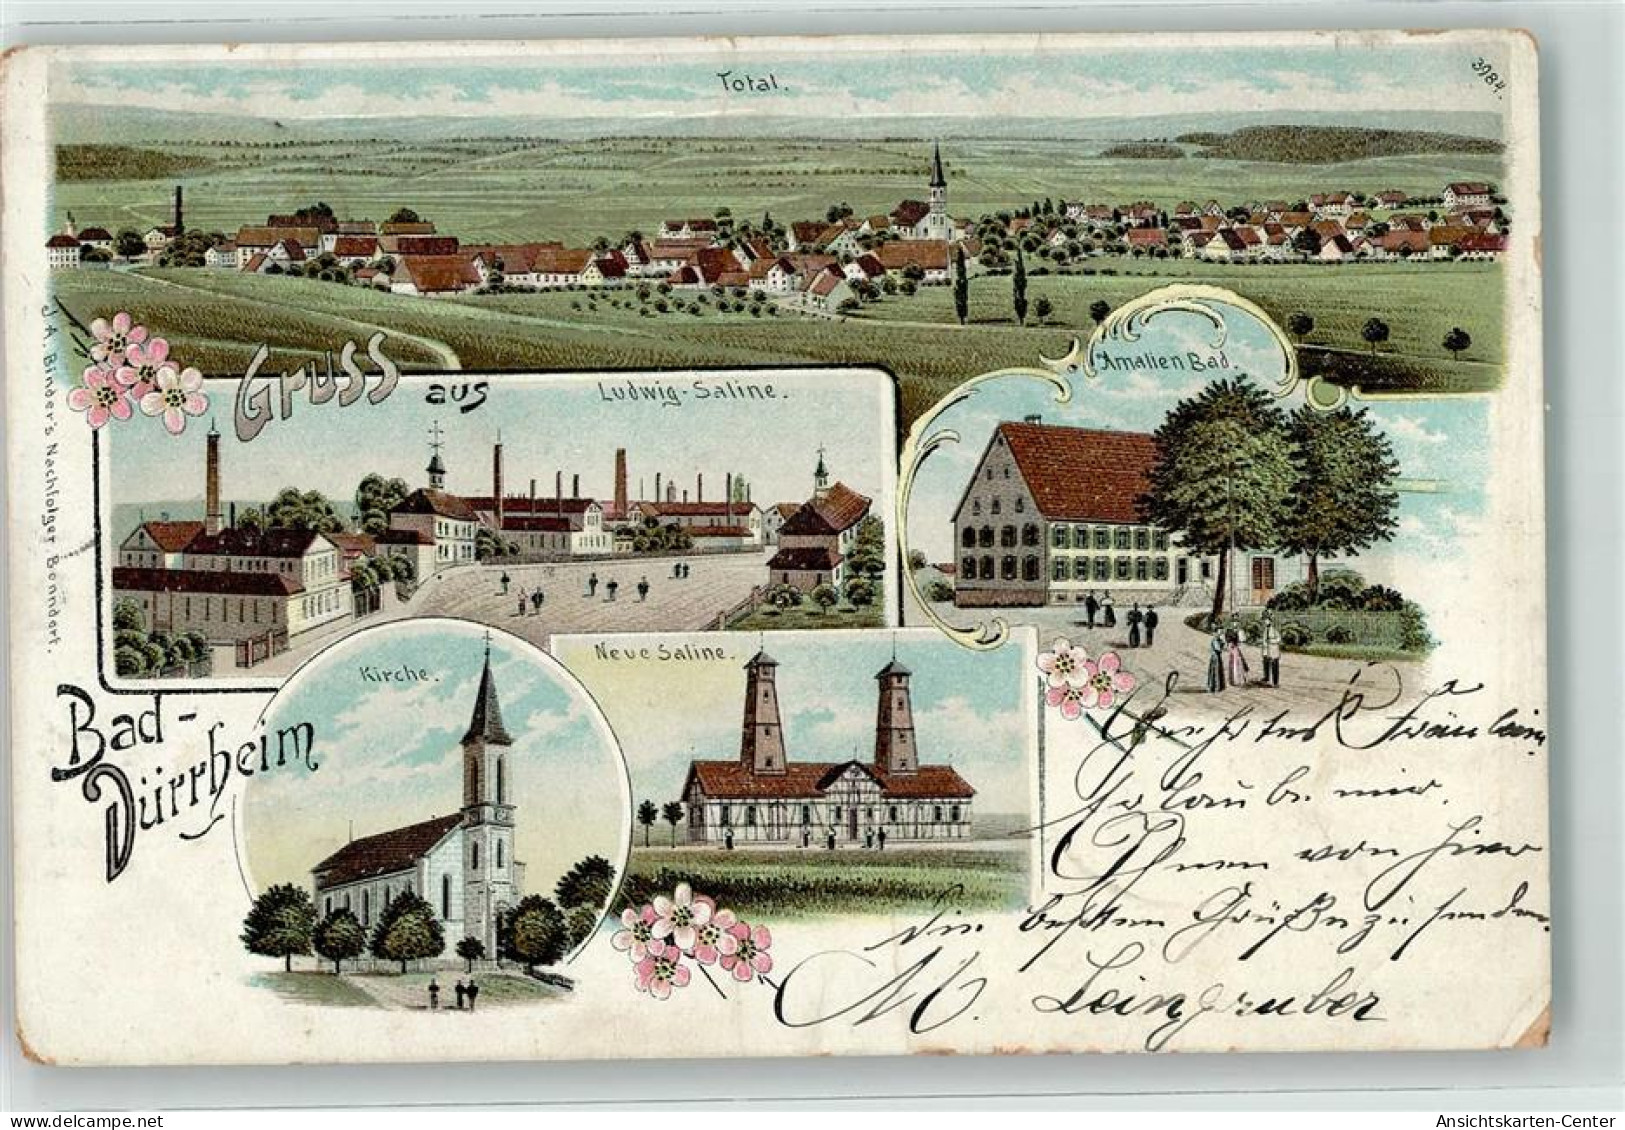 Total.
3984.
Amalien Bad.
Gruss aus
Ludwig-Saline.
J. A. Binder's Nachfolger Bonndorf.
Kirche.
Neue Saline.
Bad-
Dürrheim
Geehrtes Fräulein
Erlaube mir
Ihnen von hier
die besten Grüße zu senden.
M. Leingruber
Ansichtskarten-Center